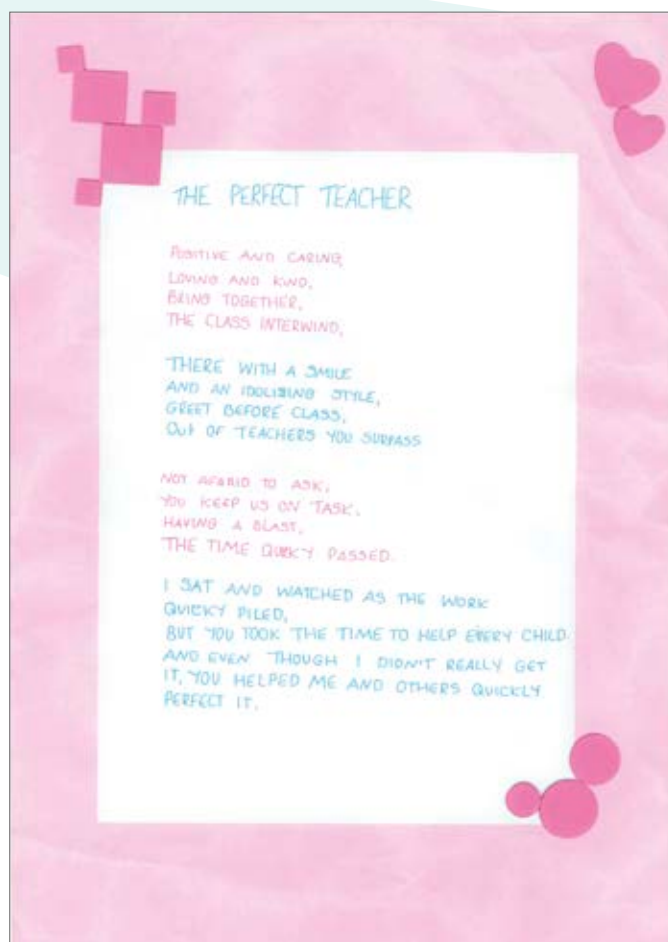 THE PERFECT TEACHER
POSITIVE AND CARING,
LOVING AND KIND,
BRING TOGETHER,
THE CLASS INTERWIND,
THERE WITH A SMILE
AND AN IDOLISING STYLE,
GREET BEFORE CLASS,
OUT OF TEACHERS YOU SURPASS
NOT AFARID TO ASK,
YOU KEEP US ON TASK,
HAVING A BLAST,
THE TIME QUICKY PASSED.
I SAT AND WATCHED AS THE WORK
QUICKY PILED,
BUT YOU TOOK THE TIME TO HELP EVERY CHILD.
AND EVEN THOUGH I DIDN'T REALLY GET
IT, YOU HELPED ME AND OTHERS QUICKLY
PERFECT IT.